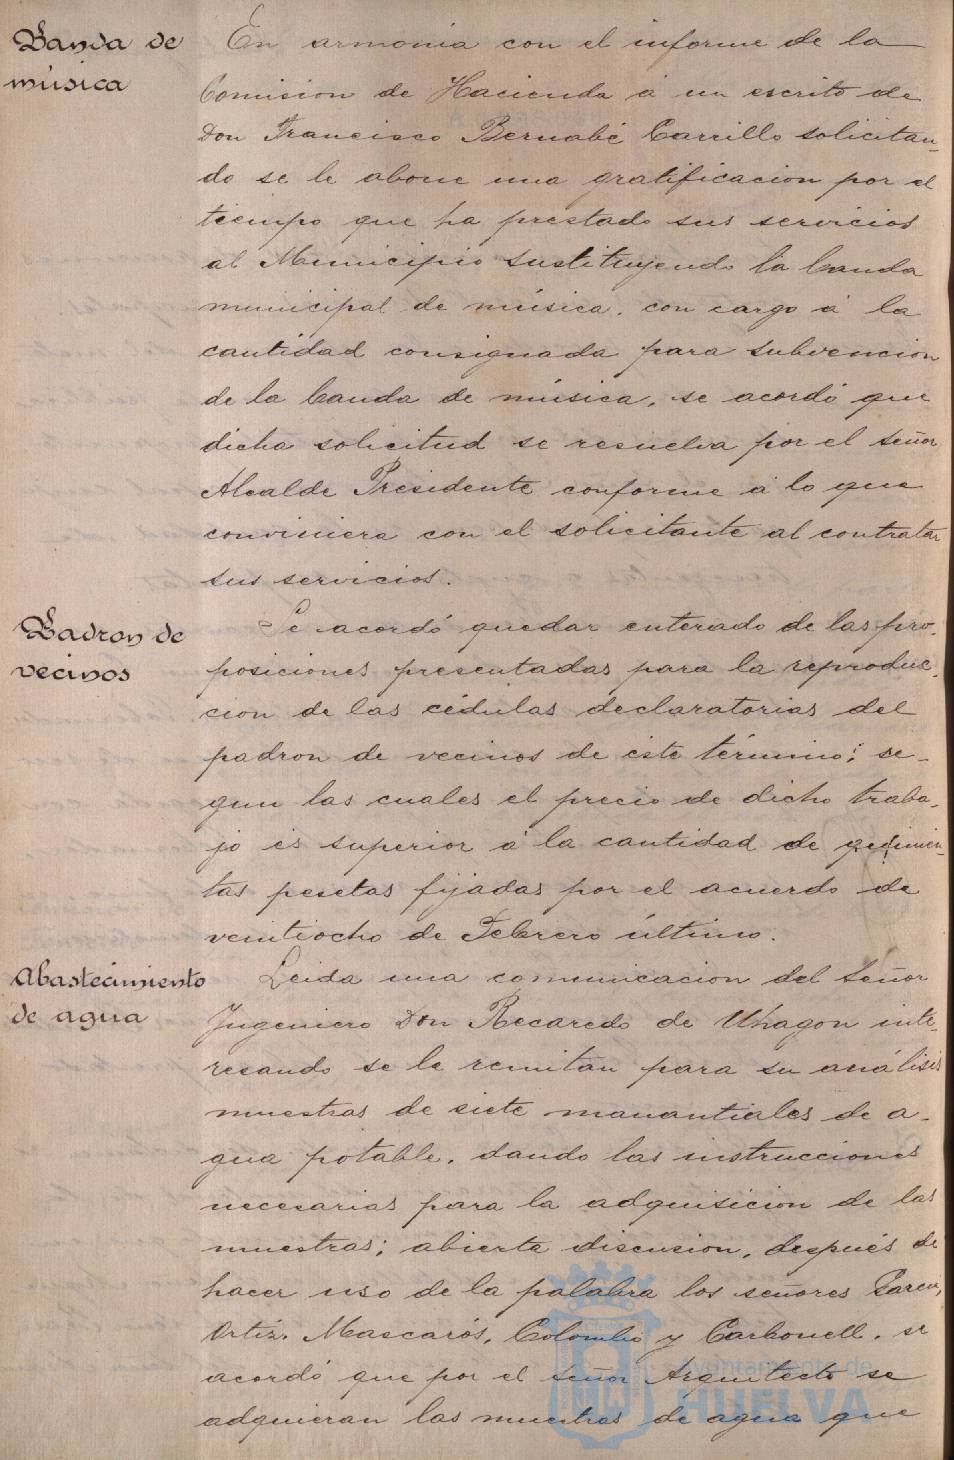 Banda de
música
En armonia con el informe de la
Comision de Hacienda á un escrito de
Don Francisco Bernabé Carrillo solicitan-
do se le abone una gratificacion por el
tiempo que ha prestado sus servicios
al Municipio sustituyendo la banda
municipal de música, con cargo á la
cantidad consignada para subvencion
de la banda de música, se acordó que
dicha solicitud se resuelva por el señor
Alcalde Presidente conforme á lo que
conviniera con el solicitante al contratar
sus servicios.
Padron de
vecinos
Se acordó quedar enterado de las pro-
posiciones presentadas para la reproduc-
cion de las cédulas declaratorias del
padron de vecinos de éste término; se-
gun las cuales el precio de dicho traba-
jo és superior á la cantidad de quinien-
tas pesetas fijadas por el acuerdo de
veintiocho de Febrero último.
Abastecimiento
de agua
Leida una comunicacion del señor
Ingeniero Don Recaredo de Uhagon inte-
resando se le remitan para su análisis
muestras de siete manantiales de a-
gua potable, dando las instrucciones
necesarias para la adquisicion de las
muestras; abierta discusion, después de
hacer uso de la palabra los señores
Ortiz, Mascarós, Colombo y Carbonell, se
acordó que por el señor Arquitecto se
adquieran las muestras de agua que
Ayuntamiento de
HUELVA